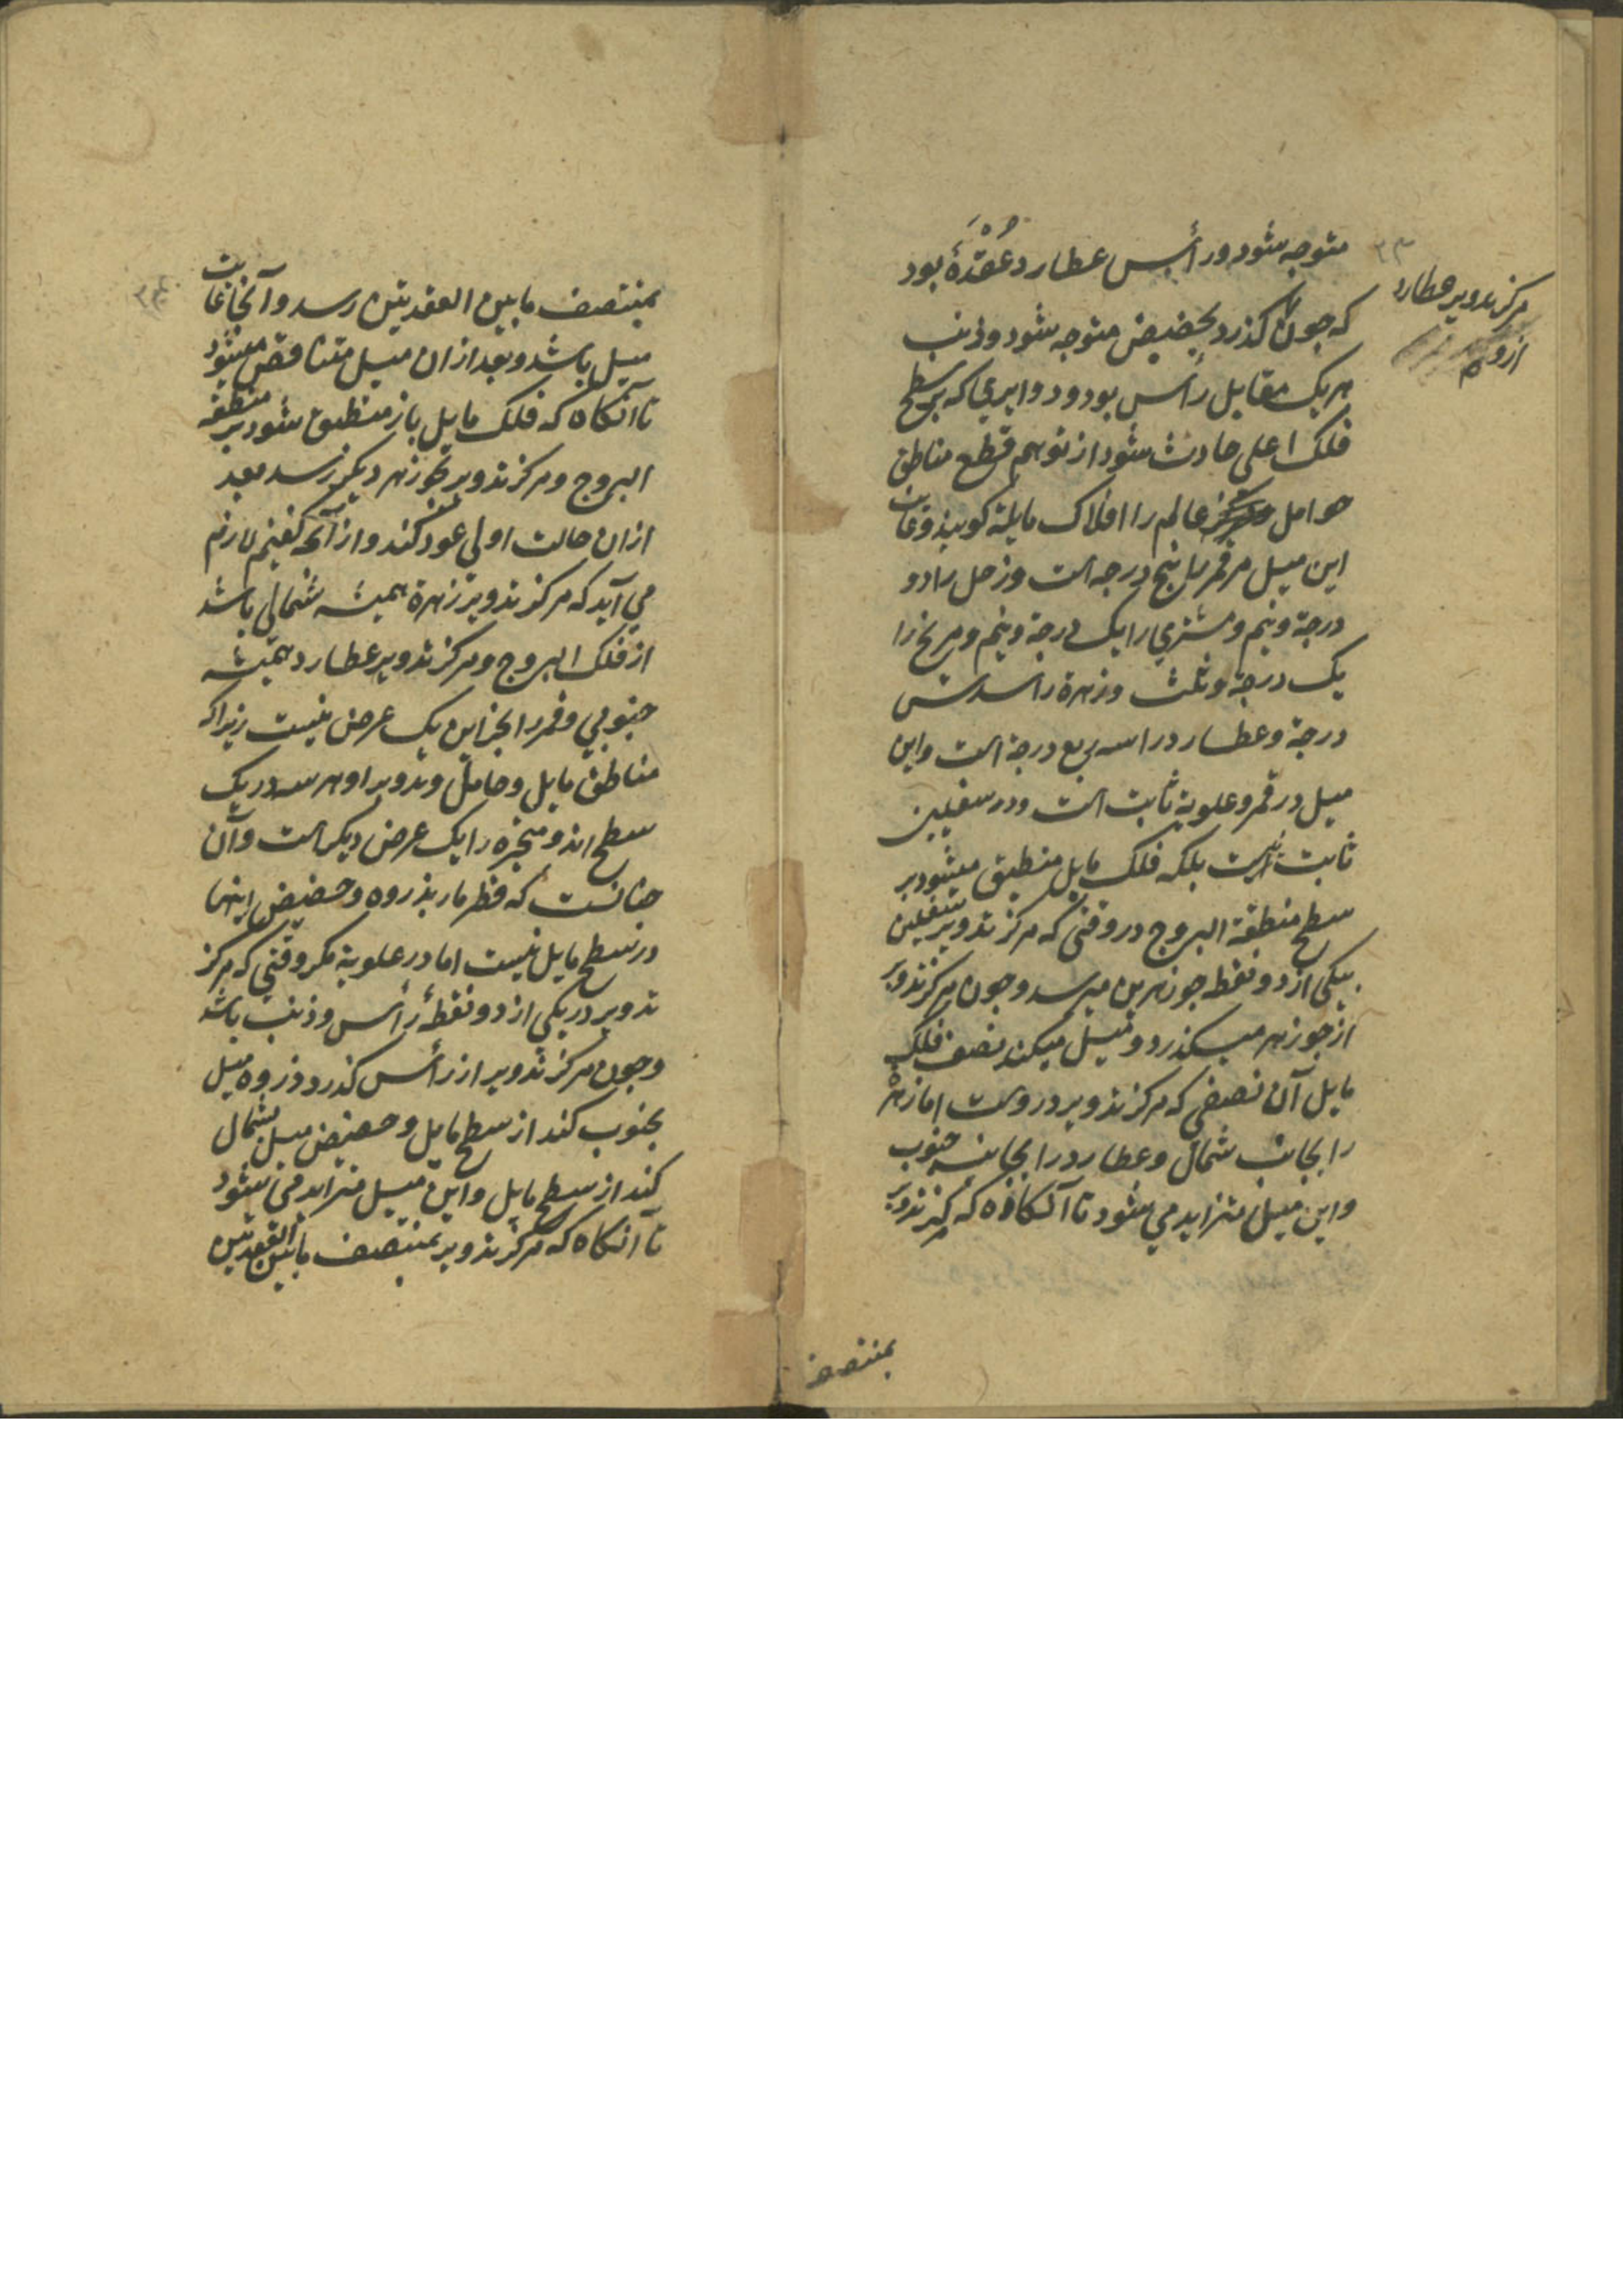 متوجه شود و رأس عطارد عُقْدَهٔ بود
مرکز تدویر عطارد
ازو
که جون کذرد بحضیض متوجه شود و ذنب
هریک مقابل رأس بود و دوایری که بر سطح
فلک اعلی حادث شود از توهم قطع مناطق
حوامل عالم را افلاک مایله کویند و غایت
این میل مر قمر را پنج درجه است و زحل را دو
درجه و نیم و مشتری را یک درجه و نیم و مریخ را
یک درجه و ثلث و زهره را سدس
درجه و عطارد را سه ربع درجه است و این
میل در قمر و علویه ثابت است و در سفلیین
ثابت نیست بلکه فلک مایل منطبق میشود بر
سطح منطقة البروج در وقتی که مرکز تدویر سفلیین
بیکی از دو نقطه جوزهرین میرسد و جون مرکز تدویر
از جوزهر میکذرد و میل میکند نصف فلک
مایل آن نصفی که مرکز تدویر دروست اما زهره
را بجانب شمال و عطارد را بجانب جنوب
و این میل متزاید می شود تا آنکاه که مرکز تدویر
بمنتصف
بمنتصف ما بین العقدتین رسد و آنجا غایت
میل باشد و بعد ازان میل متناقص میشود
تا آنکاه که فلک مایل باز منطبق شود بر منطقه
البروج و مرکز تدویر بجوزهر دیکر رسد بعد
ازان حالت اولی عود کند و از آنچه کفتیم لازم
می آید که مرکز تدویر زهره همیشه شمالی باشد
از فلک البروج و مرکز تدویر عطارد همیشه
جنوبی و قمر را بجز این یک عرض نیست زیرا که
مناطق مایل و حامل و تدویر او هر سه در یک
سطح اند و متحیره را یک عرض دیکر است و آن
جنانست که قطر مار بذروه و حضیض اینها
در سطح مایل نیست اما در علویه مکر وقتی که مرکز
تدویر در یکی از دو نقطهٔ رأس و ذنب باشد
و جون مرکز تدویر از رأس کذرد ذروه میل
بجنوب کند از سطح مایل و حضیض میل بشمال
کند از سطح مایل و این میل متزاید می شود
تا آنکاه که مرکز تدویر بمنتصف ما بین العقدتین